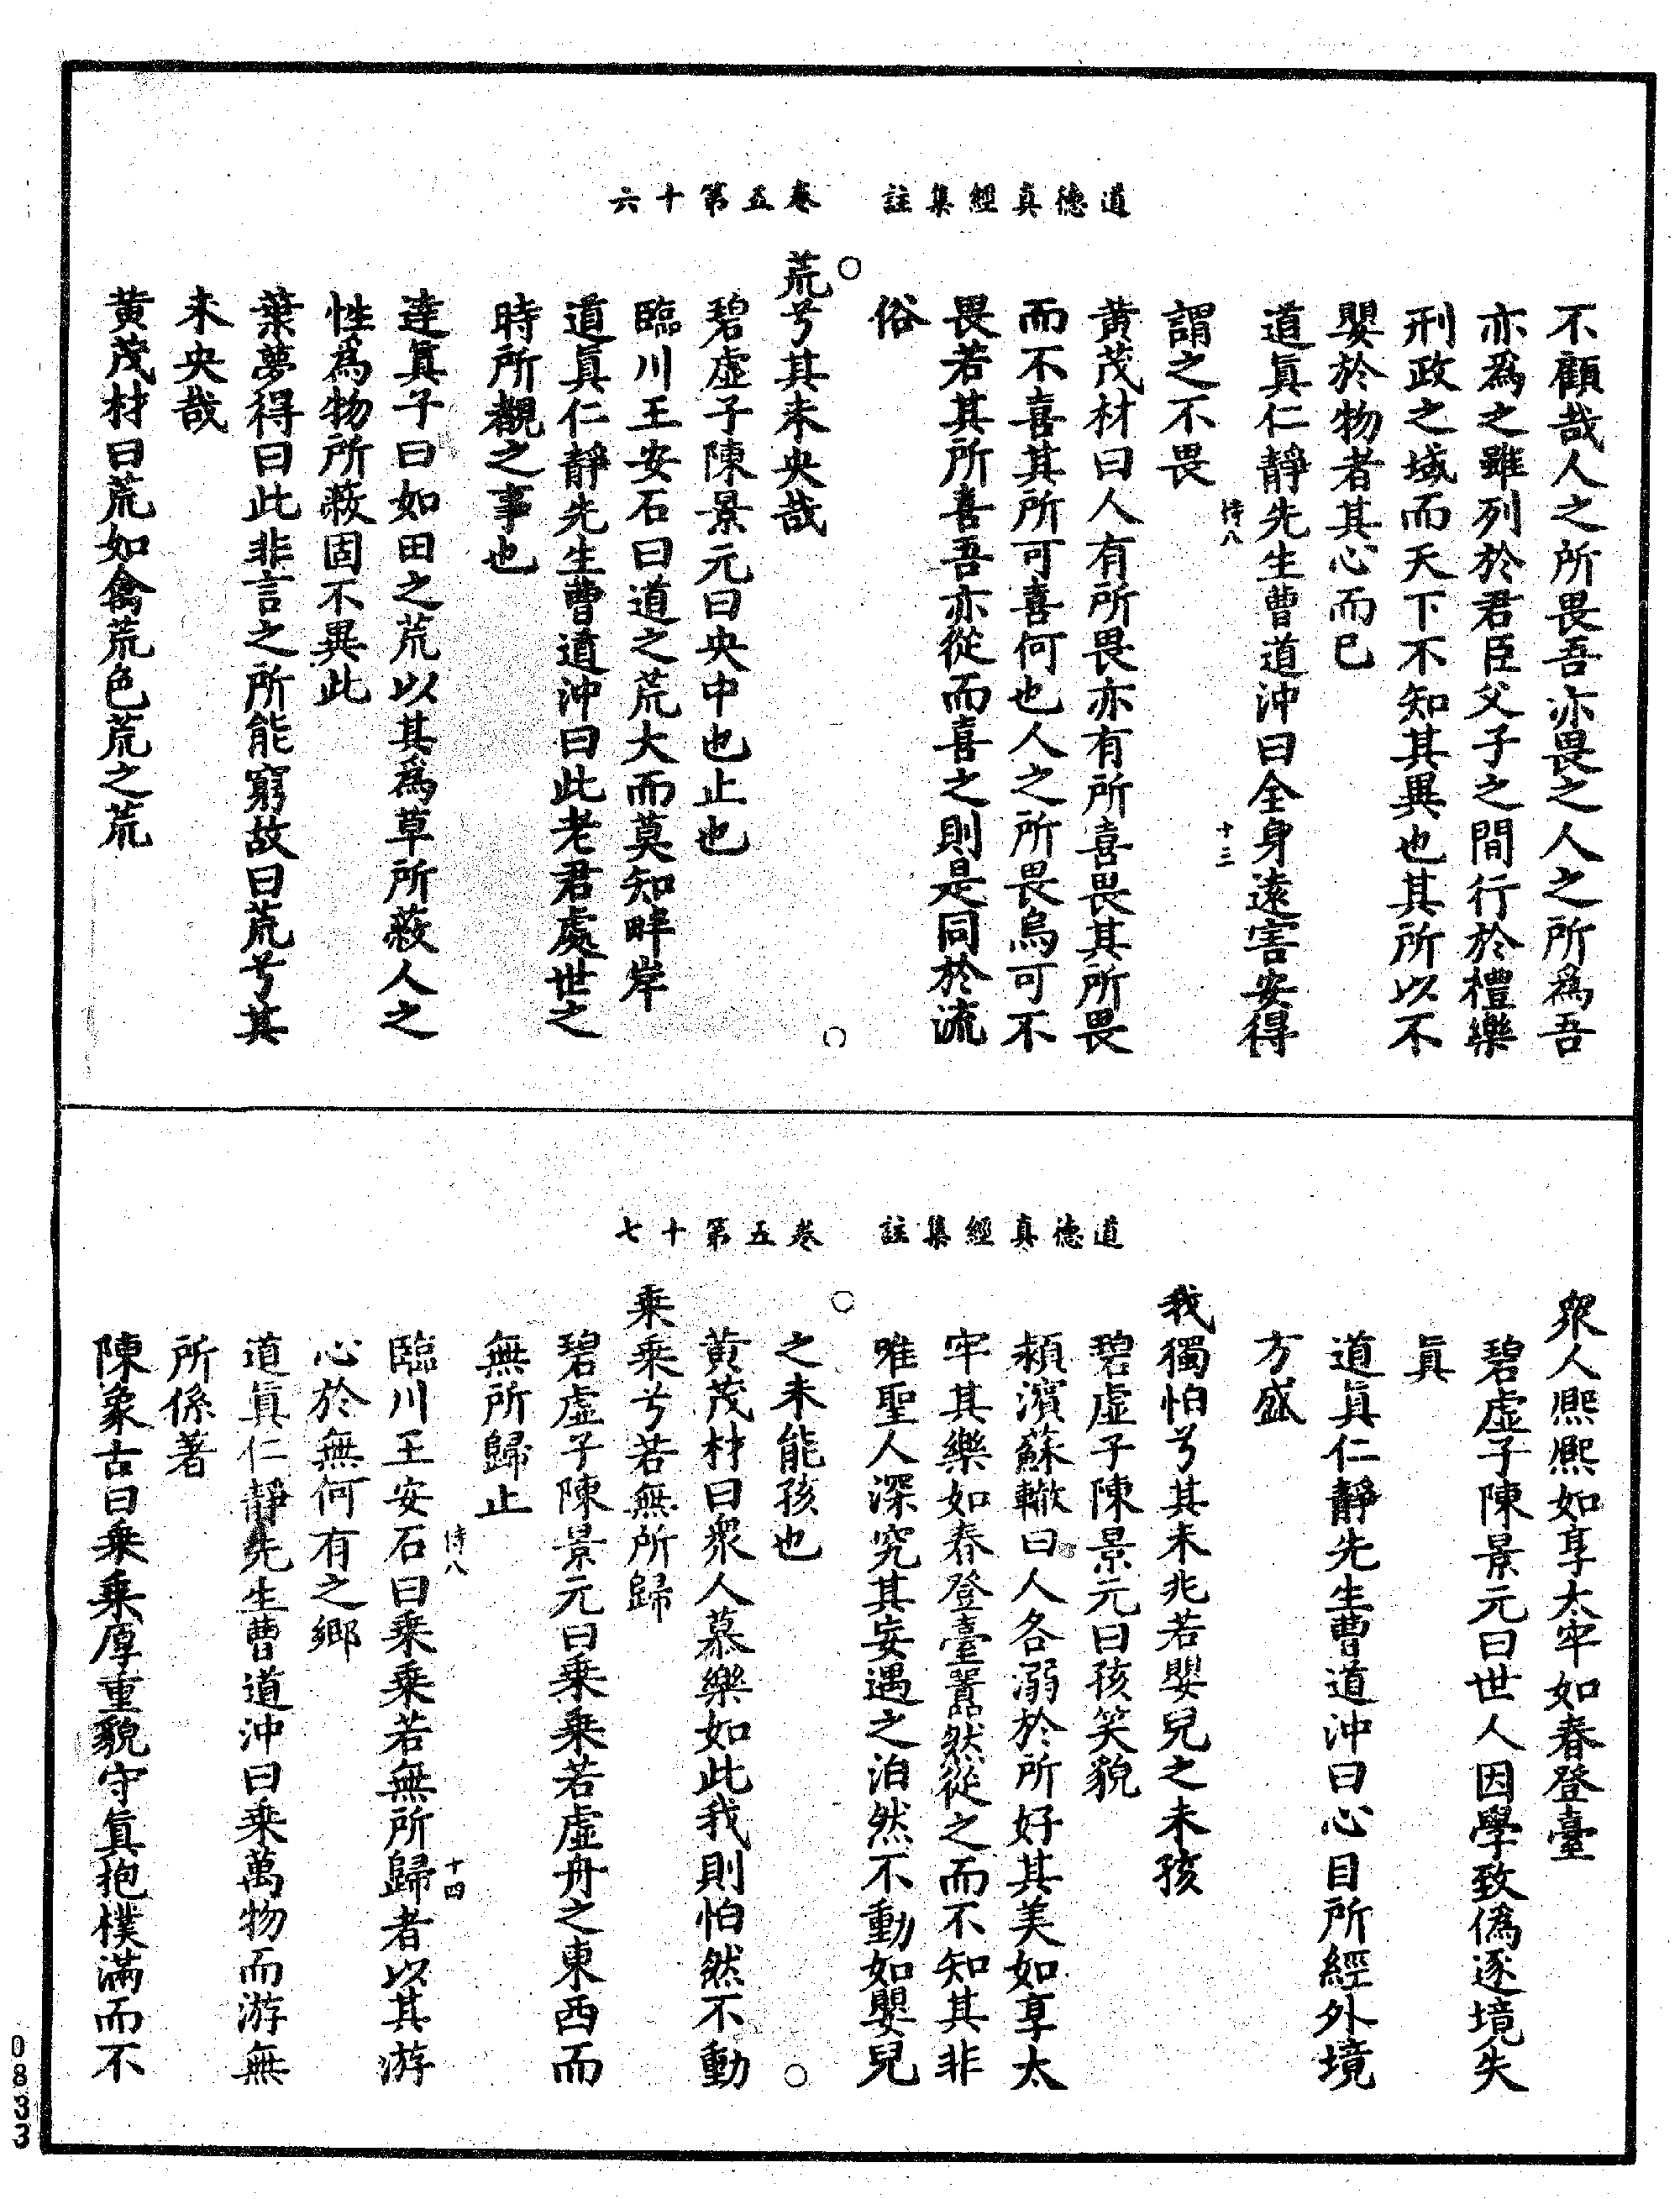 道德真經集註　卷五第十六
不顧哉人之所畏吾亦畏之人之所爲吾
亦爲之雖列於君臣父子之間行於禮樂
刑政之域而天下不知其異也其所以不
嬰於物者其心而已
道眞仁靜先生曹道沖曰全身遠害安得
謂之不畏
恃八　十三
黃茂材曰人有所畏亦有所喜畏其所畏
而不喜其所可喜何也人之所畏烏可不
畏若其所喜吾亦從而喜之則是同於流
俗
荒兮其未央哉
碧虛子陳景元曰央中也止也
臨川王安石曰道之荒大而莫知畔岸
道眞仁靜先生曹道沖曰此老君處世之
時所覩之事也
達眞子曰如田之荒以其爲草所蔽人之
性爲物所蔽固不異此
葉夢得曰此非言之所能窮故曰荒兮其
未央哉
黃茂材曰荒如禽荒色荒之荒
道德真經集註　卷五第十七
衆人熙熙如享太牢如春登臺
碧虛子陳景元曰世人因學致僞逐境失
眞
道眞仁靜先生曹道沖曰心目所經外境
方盛
我獨怕兮其未兆若嬰兒之未孩
碧虛子陳景元曰孩笑貌
潁濱蘇轍曰人各溺於所好其美如享太
牢其樂如春登臺囂然從之而不知其非
唯聖人深究其妄遇之泊然不動如嬰兒
之未能孩也
黃茂材曰衆人慕樂如此我則怕然不動
乘乘兮若無所歸
碧虛子陳景元曰乘乘若虛舟之東西而
無所歸止
恃八　十四
臨川王安石曰乘乘若無所歸者以其游
心於無何有之鄉
道眞仁靜先生曹道沖曰乘萬物而游無
所係著
陳象古曰乘乘厚重貌守眞抱樸滿而不
0833